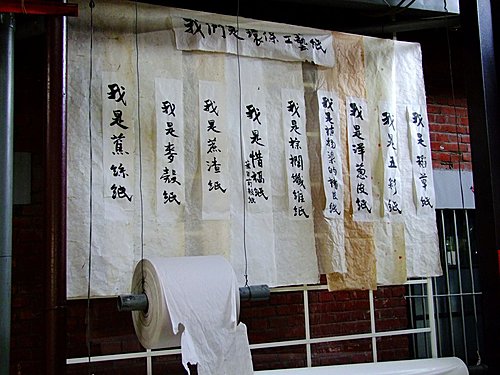 我們是環保工藝紙
我是蕉絲紙
我是麥殼紙
我是蔗渣紙
我是惜福紙
我是棕櫚纖維紙
我是植物染的皮紙
我是洋蔥皮紙
我是五彩紙
我是草紙